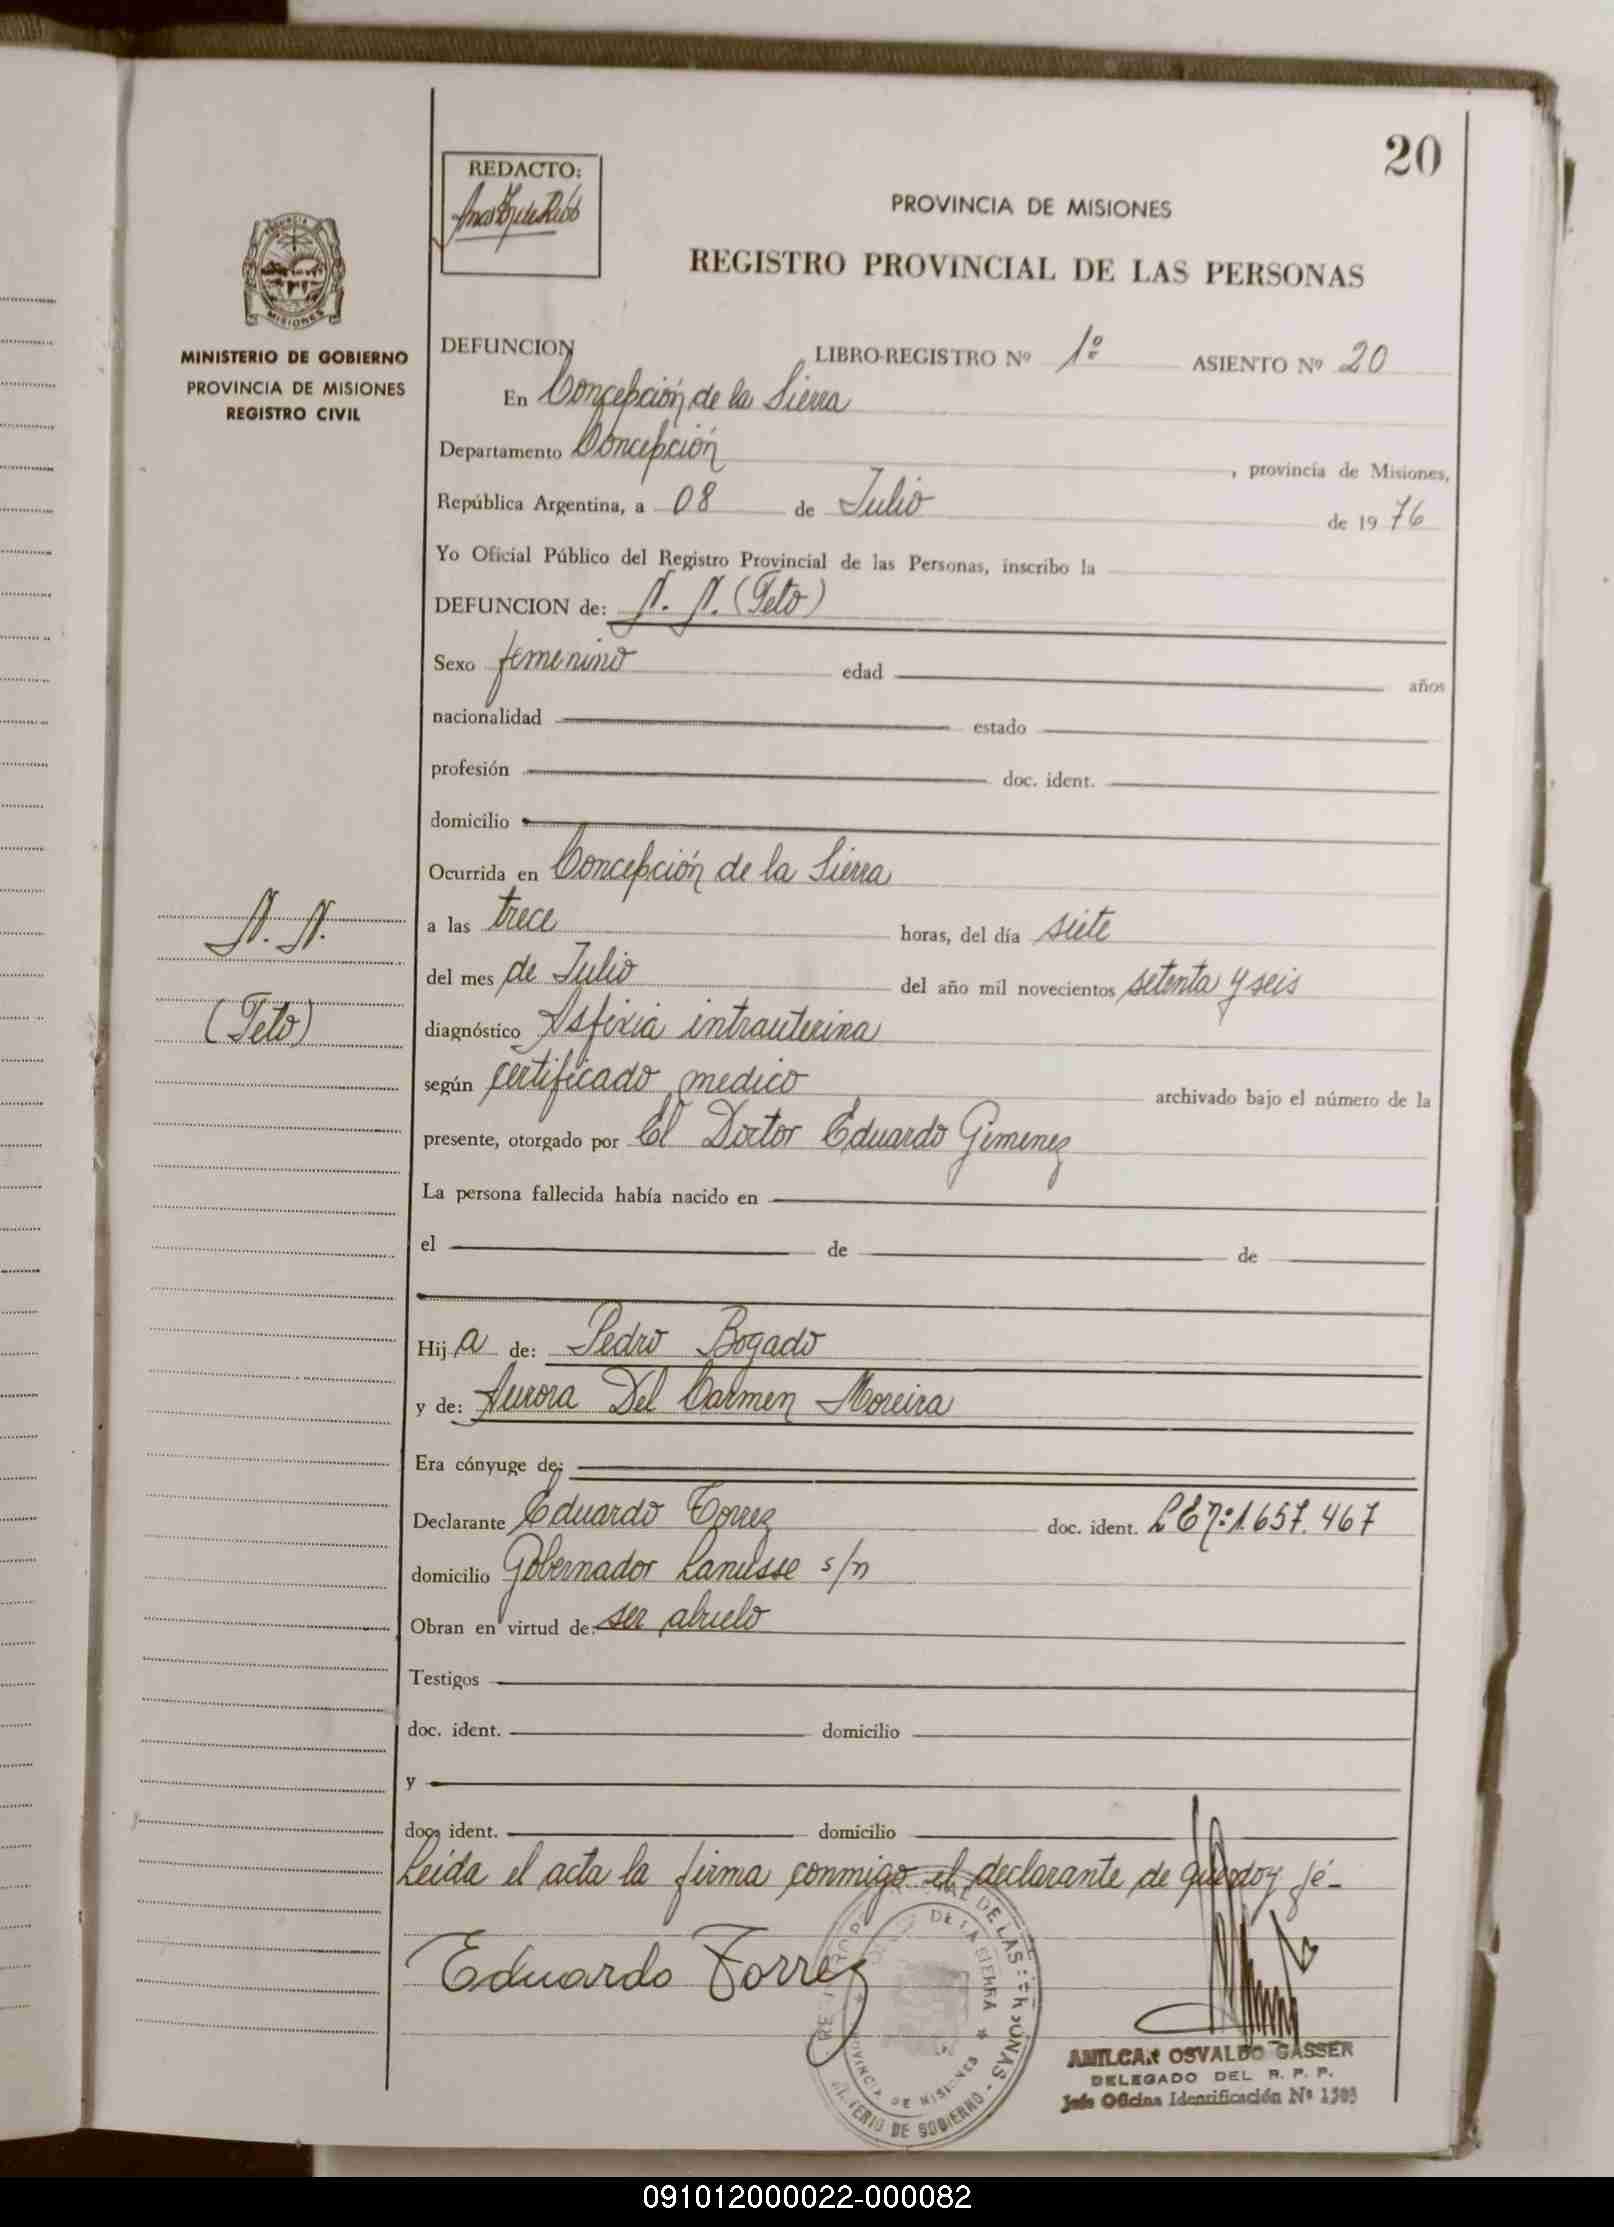 20
REDACTO:
PROVINCIA DE MISIONES
REGISTRO PROVINCIAL DE LAS PERSONAS
MISIONES
MINISTERIO DE GOBIERNO
PROVINCIA DE MISIONES
REGISTRO CIVIL
DEFUNCION LIBRO-REGISTRO Nº 1º ASIENTO Nº 20
En Concepción de la Sierra
Departamento Concepción, provincia de Misiones,
República Argentina, a 08 de Julio de 1976
Yo Oficial Público del Registro Provincial de las Personas, inscribo la
DEFUNCION de: N. N. (Feto)
Sexo femenino edad años
nacionalidad estado
profesión doc. ident.
domicilio
Ocurrida en Concepción de la Sierra
N. N.
(Feto)
a las trece horas, del día siete
del mes de Julio del año mil novecientos setenta y seis
diagnóstico Asfixia intrauterina
según certificado medico archivado bajo el número de la
presente, otorgado por El Doctor Eduardo Gimenez
La persona fallecida había nacido en
el de de
Hija de: Pedro Bogado
y de: Aurora Del Carmen Moreira
Era cónyuge de:
Declarante Eduardo Torrez doc. ident. L E nº 1.657.467
domicilio Gobernador Lanusse s/n
Obran en virtud de: ser abuelo
Testigos
doc. ident. domicilio
y
doc. ident. domicilio
Leida el acta la firma conmigo el declarante de que doy fé-
Eduardo Torrez
DE LAS PERSONAS
DE LA SIERRA
PROVINCIA DE MISIONES
MINISTERIO DE GOBIERNO
AMILCAR OSVALDO GASSER
DELEGADO DEL R. P. P.
Jefe Oficina Identificación Nº 1505
091012000022-000082